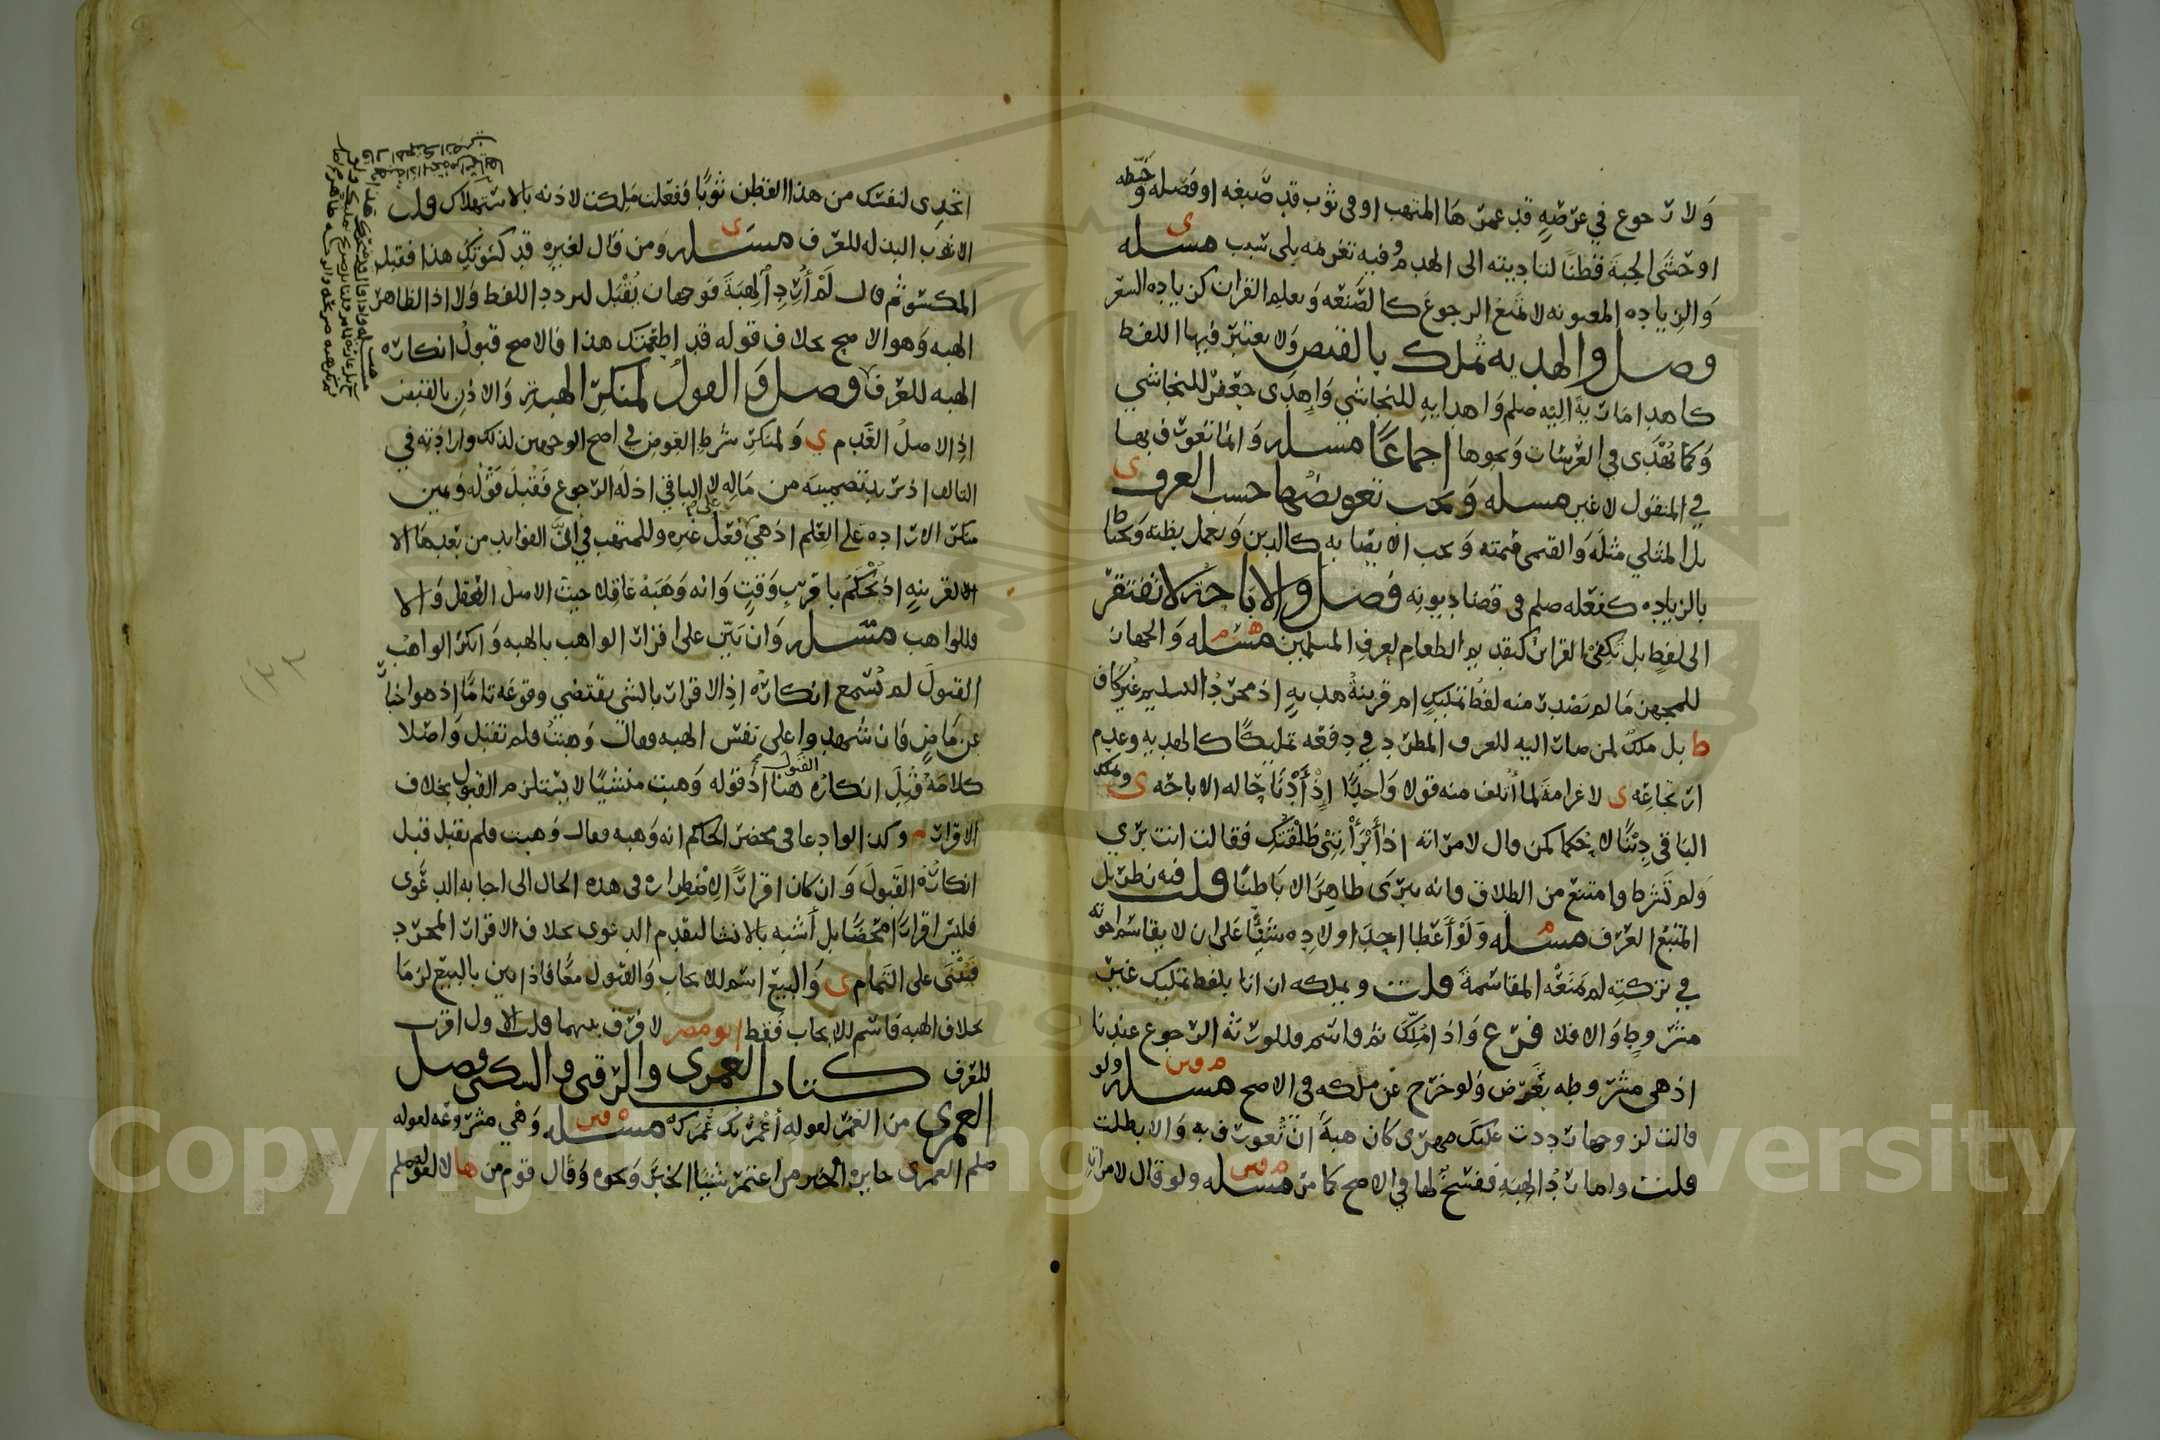 ولا رجوع في عرصة قد عمرها المتهب او في ثوب قد صبغه او فصله وخيطه
او حشى الجبة قطنا لتاديته الى الهدم وفيه تغريمه بلى سبب مسله
والزياده المعنويه لا تمنع الرجوع كالصنعه وتعلم القران كزياده السعر
وصل والهديه تملك بالقبض ولا يعتبر فيها اللفظ
كاهدا ماريه اليه صلم واهدايه للنجاشي واهدى جعفر للنجاشي
وكما تهدى في العرسات ونحوها اجماعا مسله وانما تعورف بها
في المنقول لا غير مسله ويجب تعويضها حسب العرف ى
بل المثلي مثله والقيمى قيمته ويجب الايصا به كالدين ويعمل بظنه
بالزياده كفعله صلم في قضا ديونه فصل والاباحه لا تفتقر
الى لفظ بل تكفي القرائن كتقديم الطعام لعرف المسلمين مسله والجهاز
للمجهز ما لم يصدر منه لفظ تمليك ام قرينة هديه اذ مجرد التسليم غير كاف
ط بل ملك لمن صار اليه للعرف المطرد في دفعه تمليكا كالهديه وعدم
ارتجاعه ى لا غرامة لما اتلف منه قولا واحدا اذ أدنا حاله الاباحه ى وملك
الباقي دينا لا حكما كمن قال لامراته اذا أبرأتني طلقتك فقالت انت بري
ولم تشرط وامتنع من الطلاق فانه يبرى ظاهرا لا باطنا قلت فيه نظر بل
المتبع العرف مسله ولو أعطا احد اولاده شيئا على ان لا يقاسم اخوته
في تركته لم يمنعه المقاسمة قلت ويملكه ان اتا بلفظ تمليك غير
مشروط والا فلا فرع واذا ملك ثم قاسم فللورثه الرجوع عندنا
اذ هي مشروطه بغرض ولو خرج عن ملكه في الاصح مسله ولو
قالت لزوجها رددت عليك مهري كان هبة ان تعورف به والا بطلت
قلت واما رد الهبه ففسخ لها في الاصح كما مر مسله ولو قال لامراته
اتخذى لنفسك من هذا القطن ثوبا ففعلت ملكت لاذنه بالاستهلاك قلت
الاقرب البذله للعرف مسله ومن قال لغيره قد كسوتك هذا فقبله
المكسو ثم قال لم أرد الهبة فوجهان يقبل لتردد اللفظ ولا اذ الظاهر
الهبه وهو الاصح بخلاف قوله قد اطعمتك هذا فالاصح قبول انكاره
الهبه للعرف وصل والقول لمنكر الهبه والاذن بالقبض
اذ الاصل العدم ى ولمنكر شرط العوض في اصح الوجهين لذلك وارادته في
التالف اذ يريد تضمينه من ماله لا الباقي اذ له الرجوع فقبل قوله ويمين
منكر الاراده على العلم اذ هي فعل غيره وللمتهب في ان الفوايد من بعدها الا
لقرينة اذ نحكم باقرب وقت وانه وهبه عاقلا حيث الاصل العقل والا
فللواهب مسله وان بين على اقرار الواهب بالهبه وانكر الواهب
القبول لم تسمع انكاره اذ الاقرار بالشى يقتضي وقوعه تاما اذ هو اخبار
عن ماض فان شهدوا على نفس الهبه فقال وهبت فلم تقبل واصلا
كلامه قبل انكاره القبول هنا اذ قوله وهبت منشيا لا يستلزم القبول بخلاف
الاقرار م وكذا لو ادعا في محضر الحاكم انه وهبه فقال وهبت فلم يقبل قبل
انكاره القبول وان كان اقرارا لاضطراره في هذه الحال الى اجابه الدعوى
فليس اقرارا محضا بل أشبه بالانشا لتقدم الدعوى بخلاف الاقرار المجرد
فيبنى على التمام ى والبيع اسم للايجاب والقبول معا فاذا بين بالبيع لزما
بخلاف الهبه فاسم للايجاب فقط ابو مضر لا فرق بينهما قلت الاول اقرب
للعرف كتاب العمرى والرقبى والسكنى وصل
العمرى من العمر لقوله أعمرتك عمرك مسله وهي مشروعه لقوله
صلم العمرى جايزه الخبر من اعتمر شيئا الخبر ونحوه وقال قوم من ها لا لقوله صلم